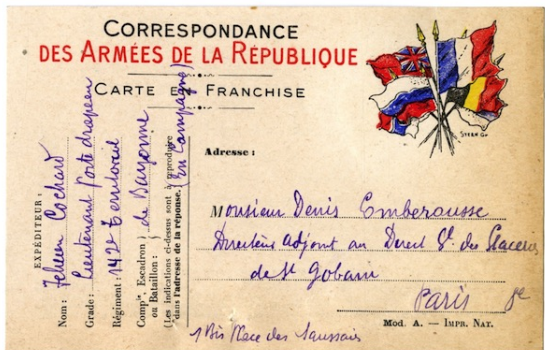 CORRESPONDANCE
DES ARMÉES DE LA RÉPUBLIQUE
CARTE EN FRANCHISE
STERN GR
EXPÉDITEUR :
Nom : Cochard
Grade : Lieutenant Porte drapeau
Régiment : 142e Territorial
Compie, Escadron
ou Bataillon :
} de Bayonne
(Les indications ci-dessus sont à reproduire
dans l'adresse de la réponse.)
(en Campagne)
Adresse :
Monsieur Denis Emberousse
Directeur adjoint au Direct Gl des Glaceries
de St Gobain
Paris 8e
1 Bis Place des Saussaies
Mod. A. — IMPR. NAT.